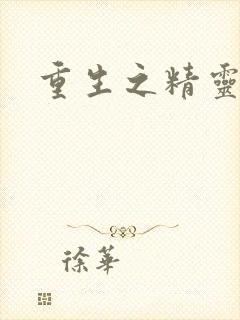 重生之精靈
徐華